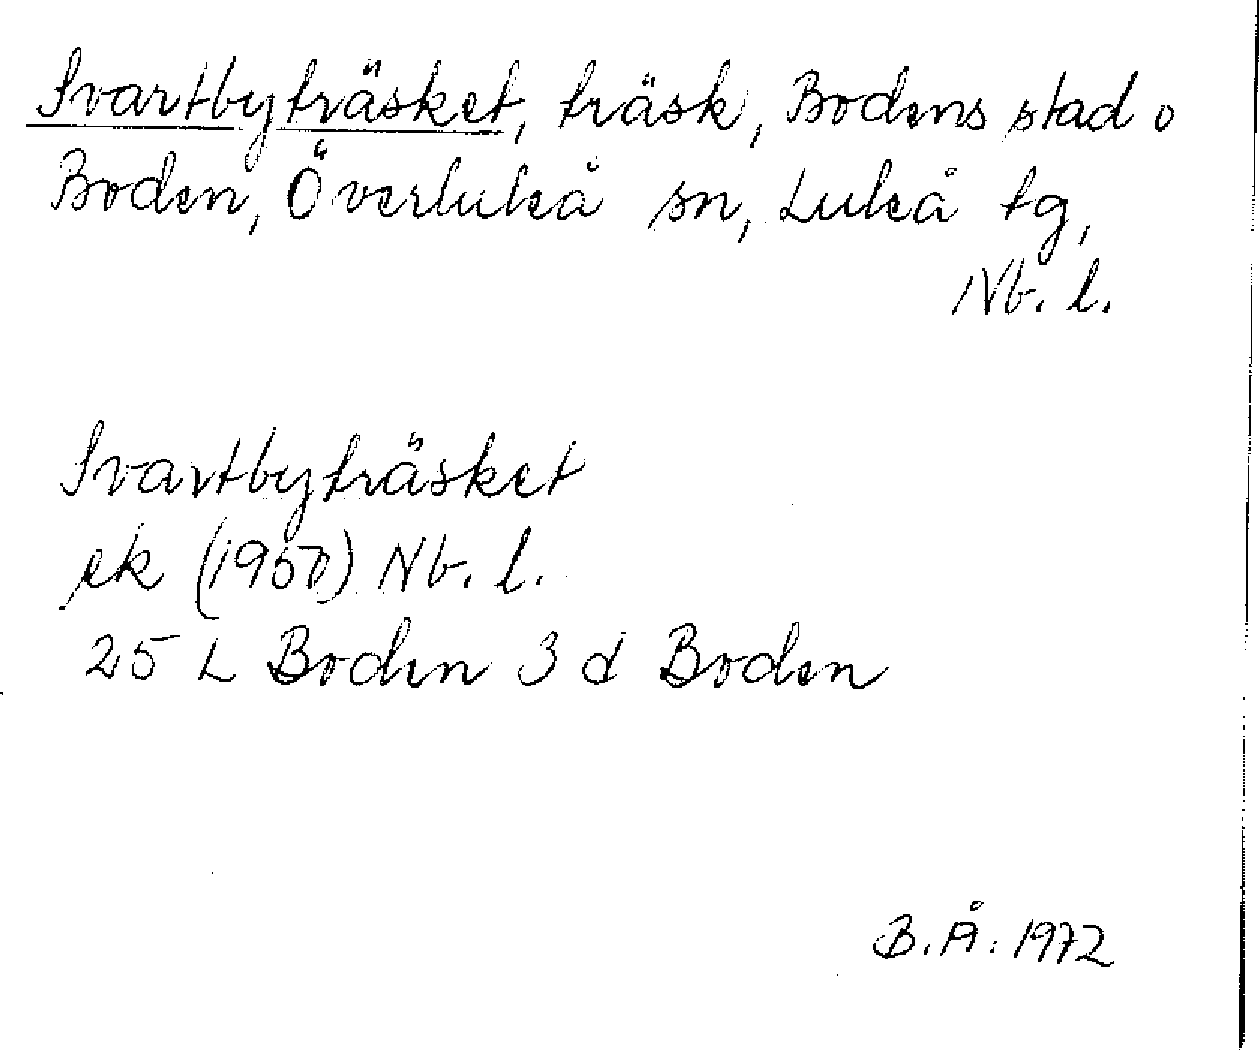 Svartbyträsket, träsk, Bodens stad o
Boden, Överluleå sn, Luleå tg,
Nb. l.
Svartbyträsket
ek (1950) Nb. l.
25 L Boden 3 d Boden
B. Å. 1972